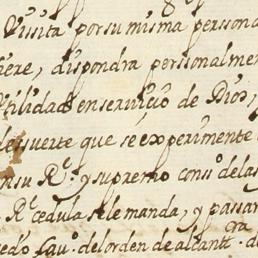 Visita por su misma persona
iere, dispondra personalmen
tilidad en servicio de Dios,
de suerte que se experimente
en su Rl. y supremo conso. de las
Rl. cedula se le manda, y passan
cedo fauo. del orden de alcantra. de